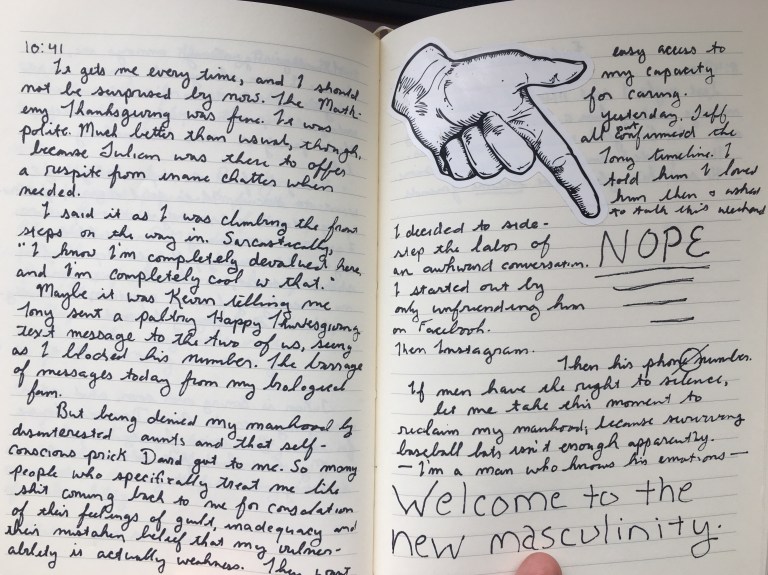 10:41
It gets me every time, and I should
not be surprised by now. The Math-
eny Thanksgiving was fine. It was
polite. Much better than usual, though,
because Julian was there to offer
a respite from inane chatter when
needed.
I said it as I was climbing the front
steps on the way in. Sarcastically,
"I know I'm completely devalued here,
and I'm completely cool w that."
Maybe it was Kevin telling me
Tony sent a paltry Happy Thanksgiving
text message to the two of us, seeing
as I blocked his number. The barrage
of messages today from my biological
fam.
But being denied my manhood by
disinterested aunts and that self-
conscious prick David got to me. So many
people who specifically treat me like
shit coming back to me for consolation
of their feelings of guilt, inadequacy and
their mistaken belief that my vulner-
ability is actually weakness. They want
easy access to
my capacity
for caring.
Yesterday, Jeff
all but confirmed the
Tony timeline. I
told him I loved
him then & asked
to talk this weekend
I decided to side-
step the labor of
an awkward conversation.
NOPE
I started out by
only unfriending him
on Facebook.
Then Instagram.
Then his phone number.
If men have the right to silence,
let me take this moment to
reclaim my manhood; because surviving
baseball bats isn't enough apparently.
— I'm a man who knows his emotions —
Welcome to the
new masculinity.